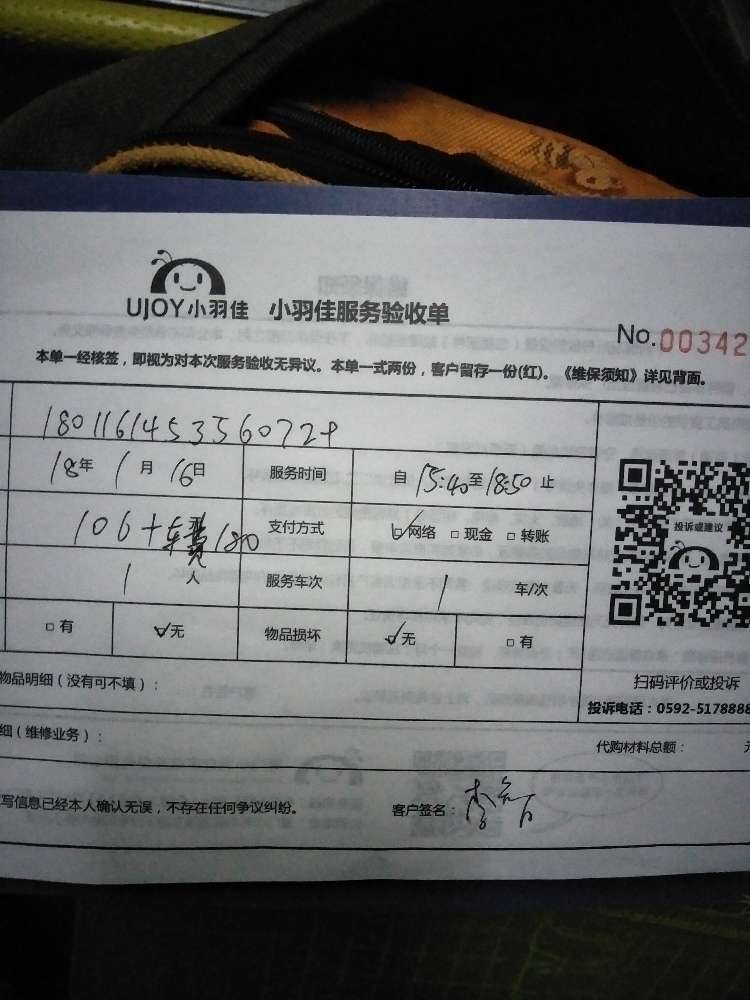 UJOY小羽佳 小羽佳服务验收单
No.00342
本单一经核签，即视为对本次服务验收无异议。本单一式两份，客户留存一份(红)。《维保须知》详见背面。
180116145356072
18年 1月 16日 服务时间 自 15:40 至 18:50 止
投诉或建议
106+车费180 元 支付方式 ☑网络 □现金 □转账
1 人 服务车次 1 车/次
□有 ☑无 物品损坏 ☑无 □有
物品明细（没有可不填）：
扫码评价或投诉
投诉电话：0592-5178888
细（维修业务）：
代购材料总额：
写信息已经本人确认无误，不存在任何争议纠纷。 客户签名：